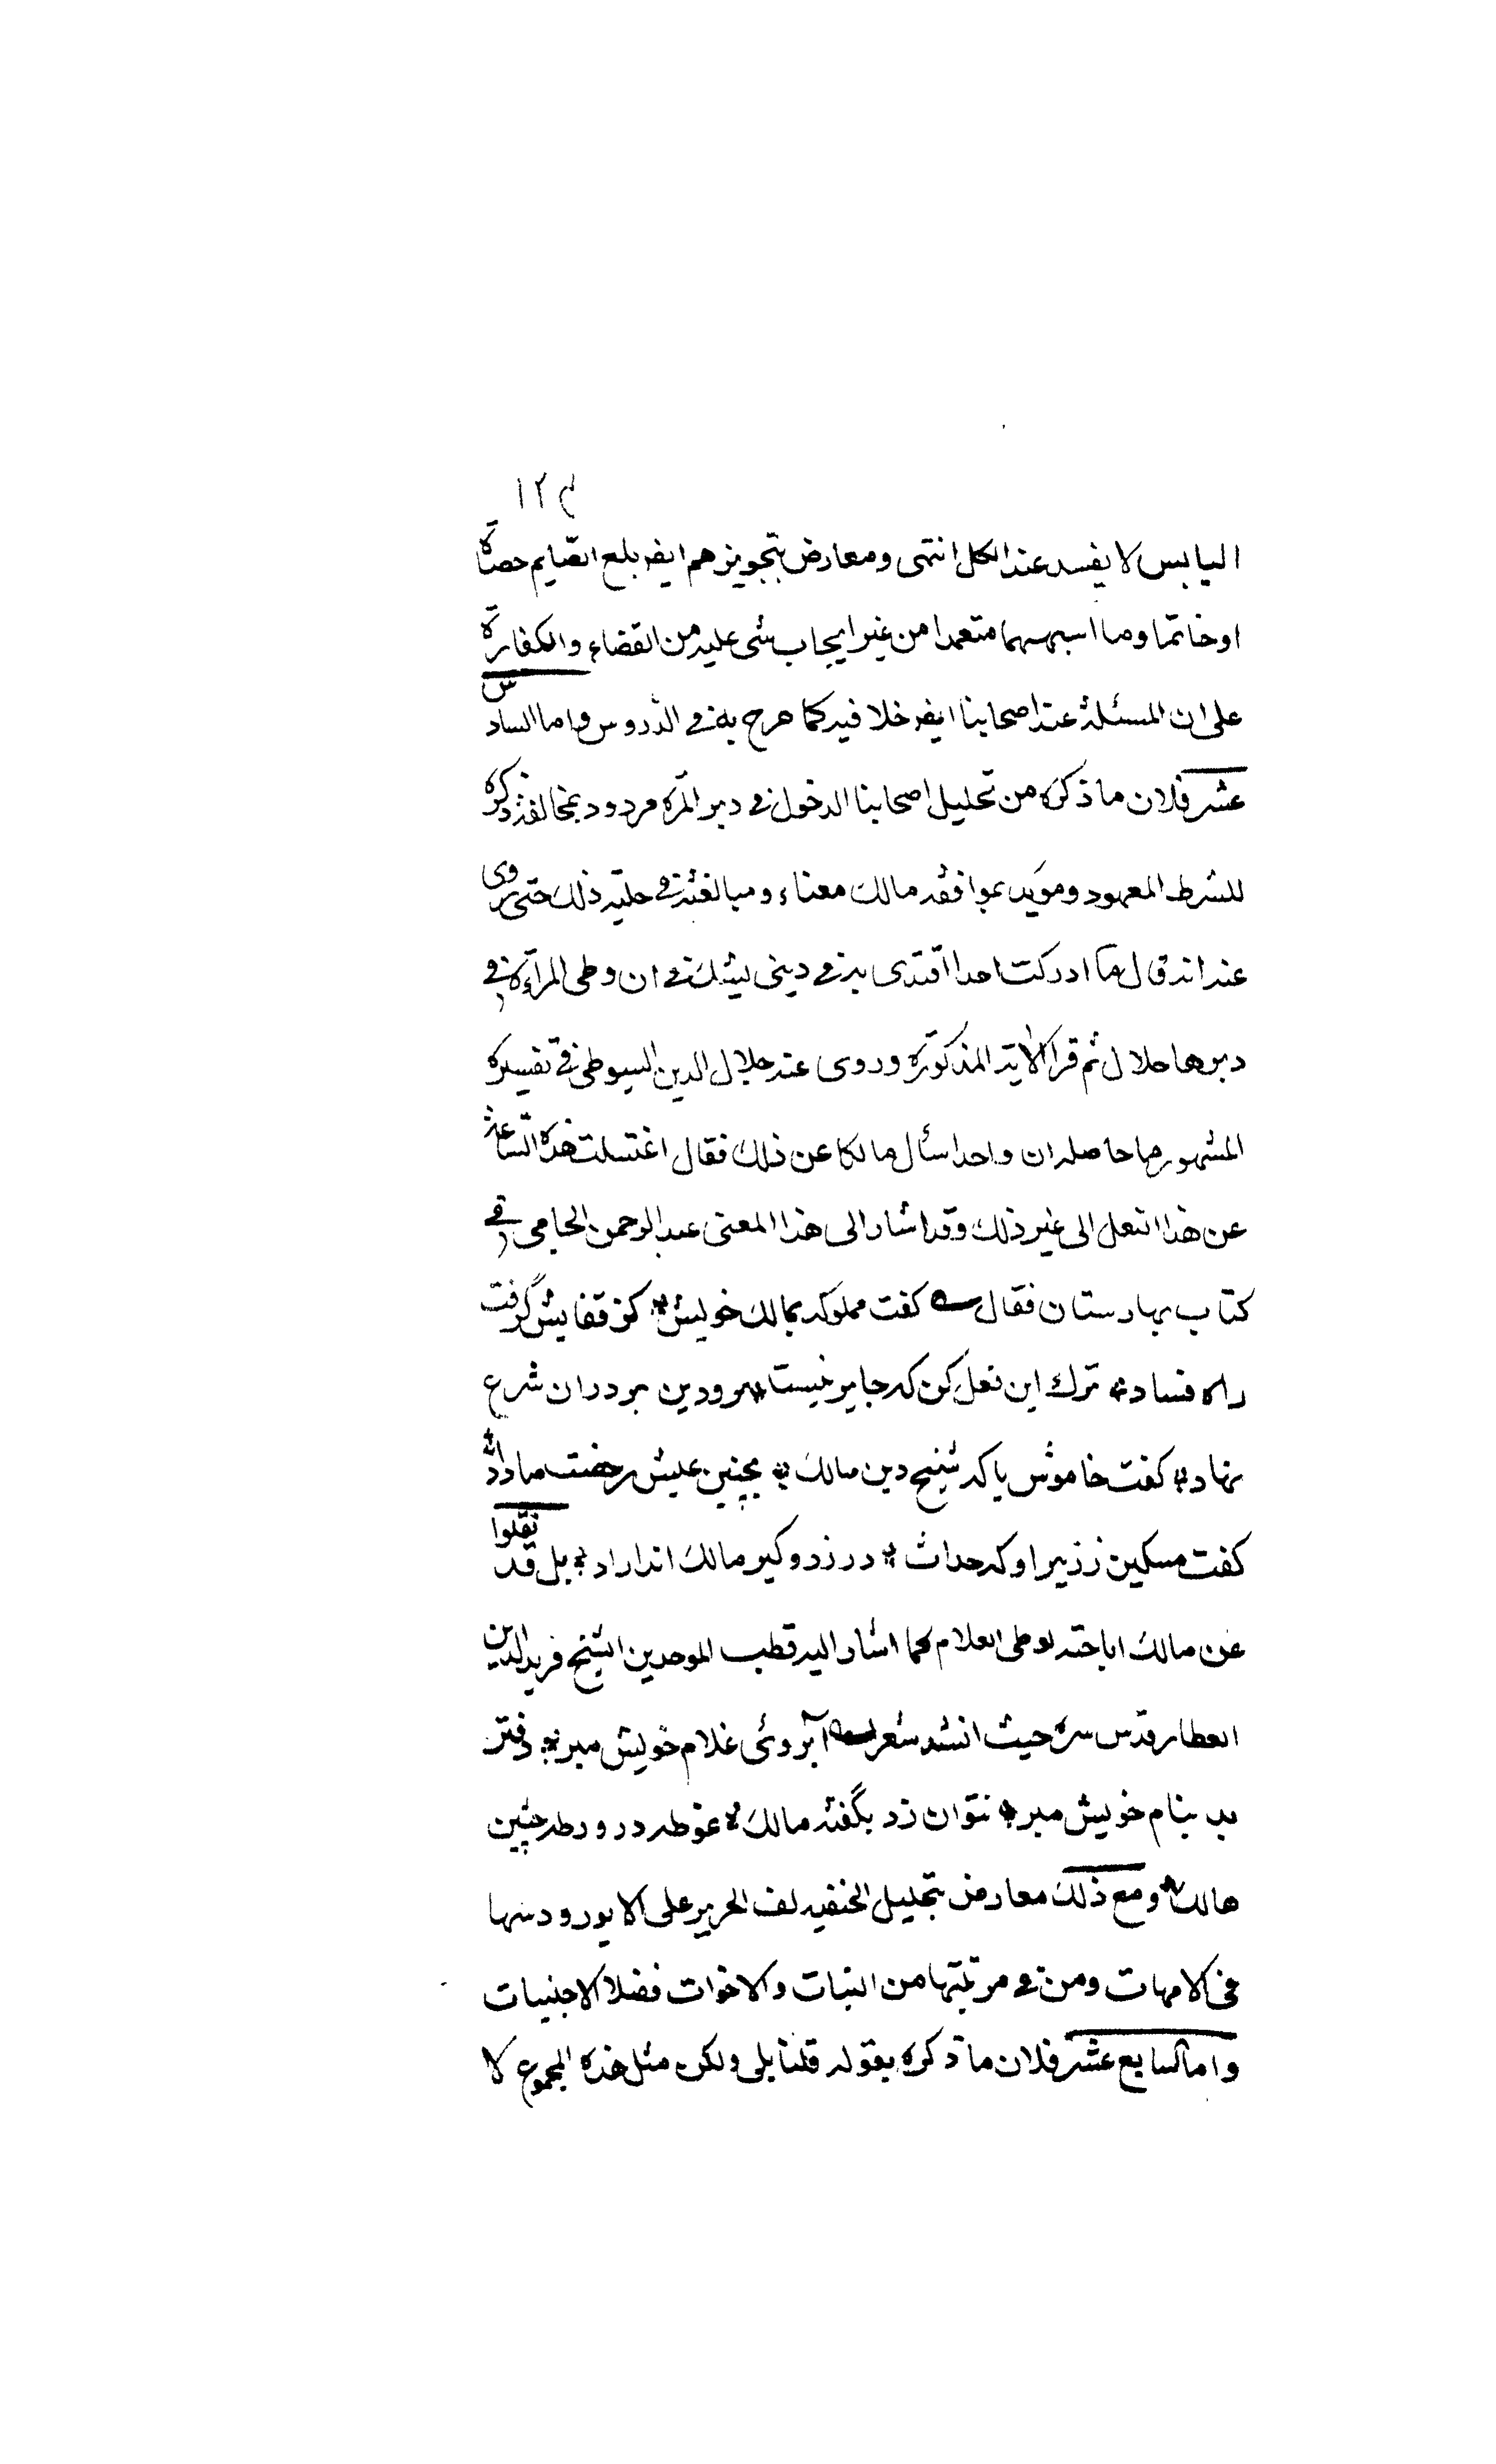 ١٢٣
اليابس لا يفسد عند الكل انتهى ومعارض بتجويزهم ايضا بلع الصّايم حصاة
او خاتما وما اشبههما متعمدا من غير ايجاب شى عليه من القضاء والكفارة
على ان المسئلة عند اصحابنا ايضا خلافيه كما صرح به فى الدّروس واما السادس
عشر فلان ما ذكره من تحليل اصحابنا الدخول فى دبر المرّة مردود بمخالفة ذكره
للشرط المعهود ومؤيد بموافقه مالك معناء ومبالغته فى حليّه ذلك حتى روى
عنه انه قال ما ادركت احدا اقتدى به فى دينى يشك فى ان وطى المرأة فى
دبرها حلال ثم قرا الاية المذكورة وروى عنه جلال الدين السيوطى فى تفسيره
المشهور ما حاصله ان واحدا سأل مالكا عن ذلك فقال اغتسلت هذه السّاعة
عن هذا الفعل الى غير ذلك وقد اشار الى هذا المعنى عبد الرحمن الجامى فى
كتاب بهارستان فقال كفت مملوكه بمالك خويش كز قفايش گرفت
راه فساد ترك اين فعل كن كه جايز نيست سرودين بر دران شرع
نهاد كفت خاموش باكه شيخ دين مالك بچنين عيش رخصت ما داد
كفت مسكين ز زير او كه حداث در زد و كير مالك اندازاد بل قد نقلوا
عن مالك اباحته لوطى الغلام كما اشار اليه قطب الموحدين الشيخ فريد الدين
العطار قدّس سره حيث انشد شعر آبروئى غلام خويش مبر دفتر
بد بنام خويش مبر نتوان زد بگفته مالك غوطه در ورطه چنين
هالك ومع ذلك معارض بتحليل الحنفيه لف الحرير على الاير ودسها
فى الامهات ومن فى مرتبتها من البنات والاخوات فضلا الاجنبيات
واما السابع عشر فلان ما ذكره بقوله قلنا بلى ولكن مثل هذه المجموع لا